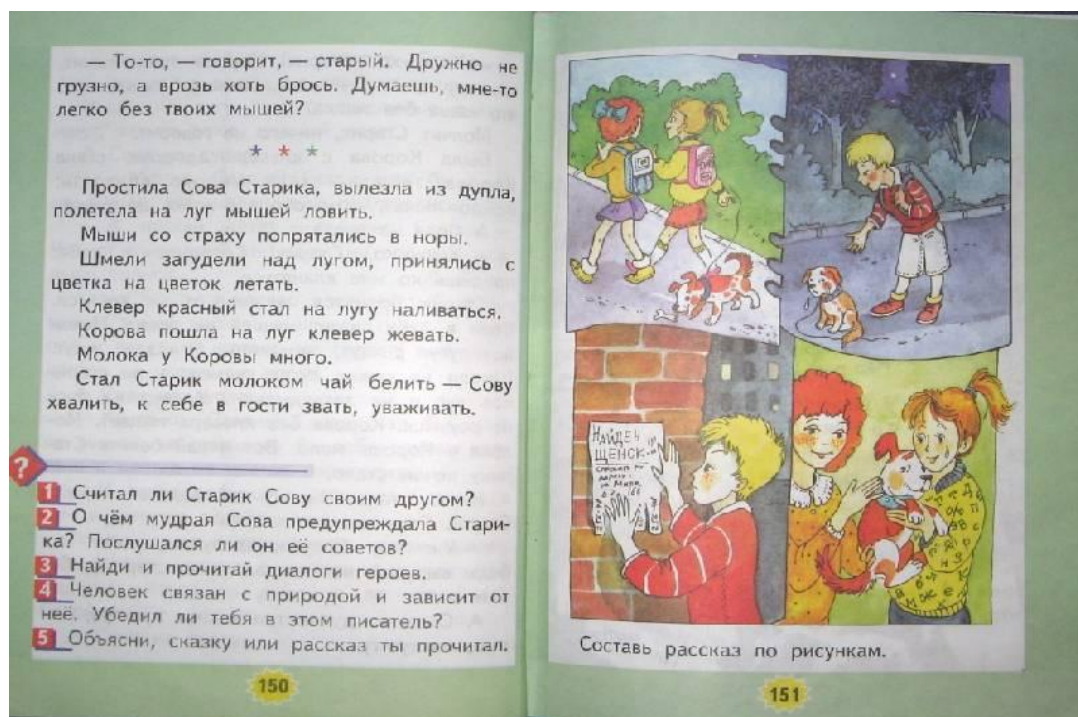 — То-то, — говорит, — старый. Дружно не
грузно, а врозь хоть брось. Думаешь, мне-то
легко без твоих мышей?
* * *
Простила Сова Старика, вылезла из дупла,
полетела на луг мышей ловить.
Мыши со страху попрятались в норы.
Шмели загудели над лугом, принялись с
цветка на цветок летать.
Клевер красный стал на лугу наливаться.
Корова пошла на луг клевер жевать.
Молока у Коровы много.
Стал Старик молоком чай белить — Сову
хвалить, к себе в гости звать, уваживать.
?
1 Считал ли Старик Сову своим другом?
2 О чём мудрая Сова предупреждала Стари-
ка? Послушался ли он её советов?
3 Найди и прочитай диалоги героев.
4 Человек связан с природой и зависит от
неё. Убедил ли тебя в этом писатель?
5 Объясни, сказку или рассказ ты прочитал.
150
НАЙДЕН
ЩЕНОК
Составь рассказ по рисункам.
151